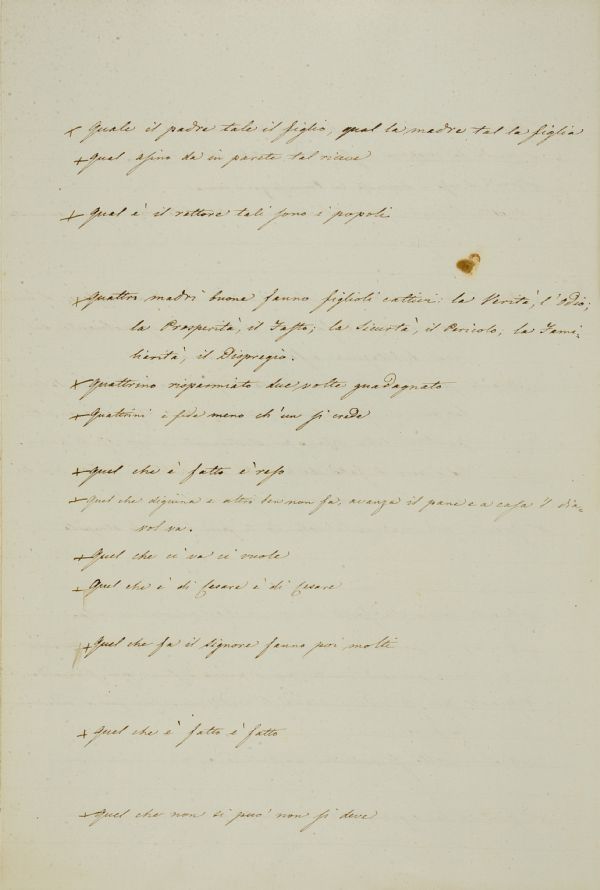 × Quale il padre tale il figlio, qual la madre tal la figlia
+ Qual asino da in parete tal riceve
+ Qual è il rettore tali sono i popoli
+ Quattro madri buone fanno figlioli cattivi: la Verità, l'Odio;
la Prosperità, il Fasto; la Sicurtà, il Pericolo, la Fami-
liarità, il Dispregio.
× Quattrino risparmiato due volte guadagnato
+ Quattrini e fede meno ch'un si crede
+ Quel che è fatto è reso
+ Quel che digiuna e altro ben non fa, avanza il pane e a casa 'l dia-
vol va.
+ Quel che ci va ci vuole
+ Quel che è di Cesare è di Cesare
+ Quel che fa il signore fanno poi molti
+ Quel che è fatto è fatto
+ Quel che non si può non si deve